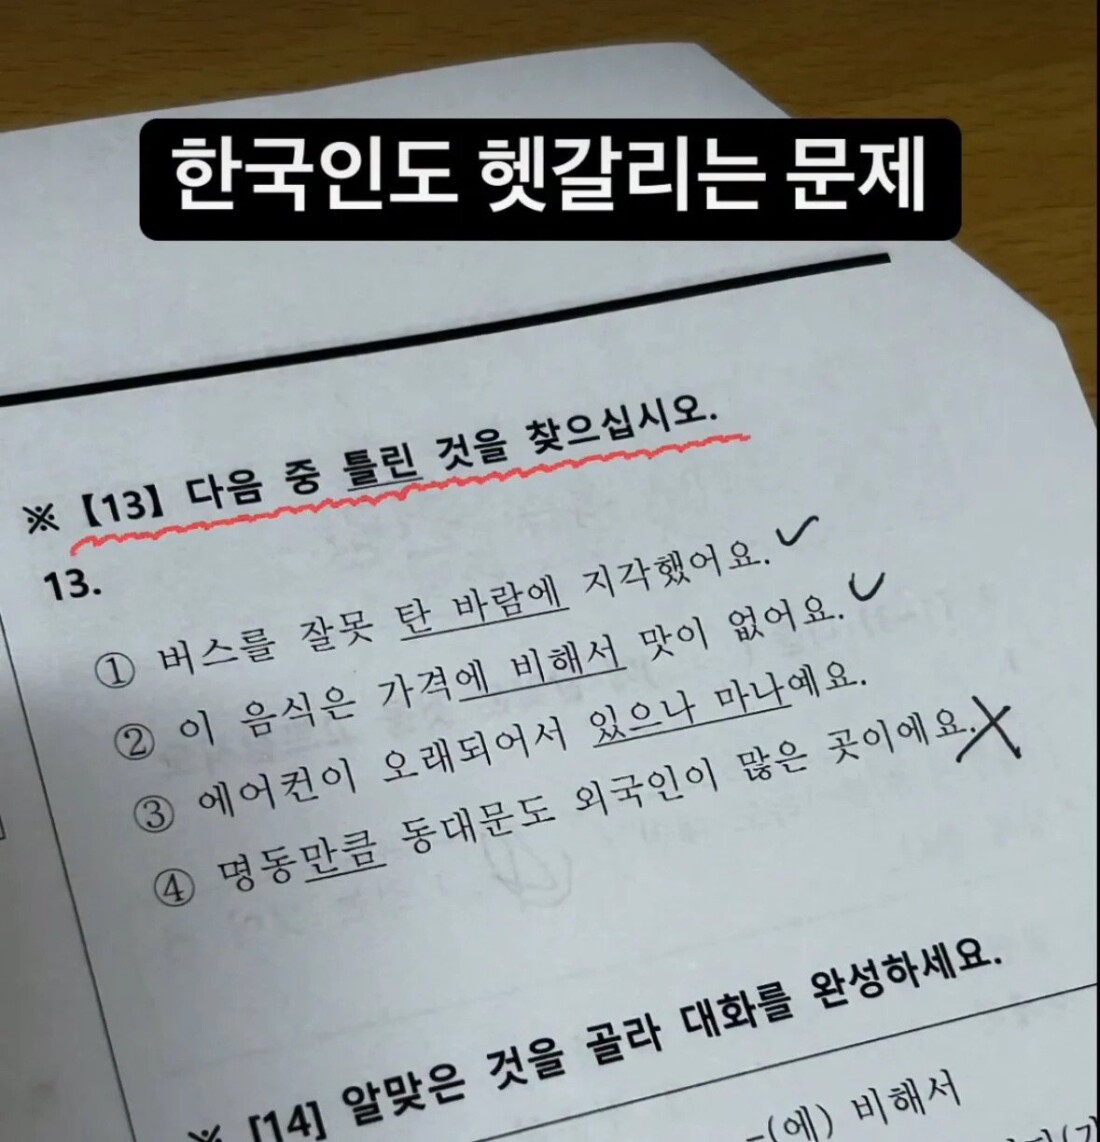 한국인도 헷갈리는 문제
※【13】 다음 중 틀린 것을 찾으십시오.
13.
① 버스를 잘못 탄 바람에 지각했어요.
② 이 음식은 가격에 비해서 맛이 없어요.
③ 에어컨이 오래되어서 있으나 마나예요.
④ 명동만큼 동대문도 외국인이 많은 곳이에요.
※ [14] 알맞은 것을 골라 대화를 완성하세요.
-(에) 비해서